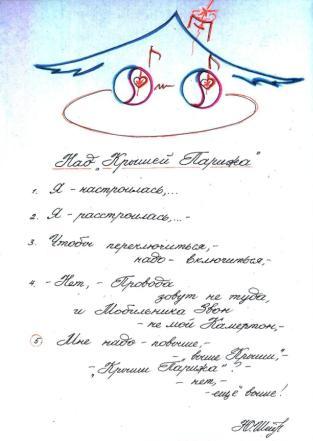 Над „Крышей Парижа"
1. Я - настроилась,...
2. Я - расстроилась,...-
3. Чтобы переключиться,-
надо - включиться,-
4. - Нет, - Провода
зовут не туда,
и Мобильника Звон
- не мой Камертон,-
5. Мне надо - повыше,-
- „выше Крыши",-
- „Крыши Парижа"? -
- нет,-
- ещё выше!